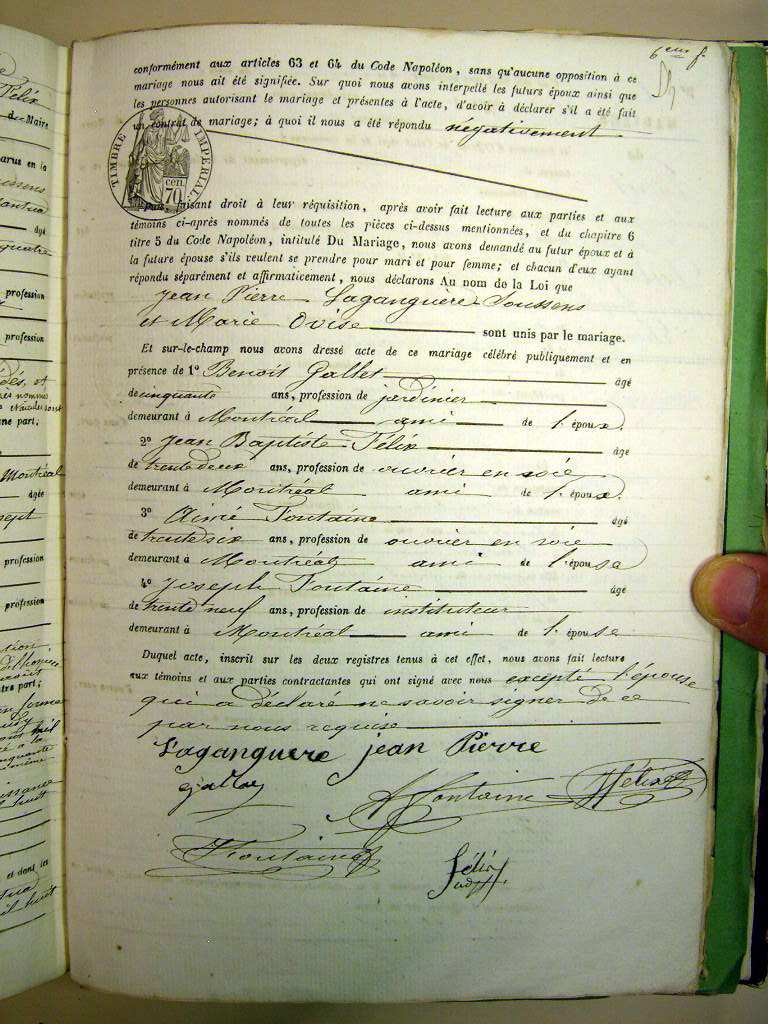 6eme f.
conformément aux articles 63 et 64 du Code Napoléon, sans qu'aucune opposition à ce
mariage nous ait été signifiée. Sur quoi nous avons interpellé les futurs époux ainsi que
les personnes autorisant le mariage et présentes à l'acte, d'avoir à déclarer s'il a été fait
un contrat de mariage; à quoi il nous a été répondu négativement
TIMBRE IMPERIAL
70 cen.
Puis, faisant droit à leur réquisition, après avoir fait lecture aux parties et aux
témoins ci-après nommés de toutes les pièces ci-dessus mentionnées, et du chapitre 6
titre 5 du Code Napoléon, intitulé Du Mariage, nous avons demandé au futur époux et à
la future épouse s'ils veulent se prendre pour mari et pour femme; et chacun d'eux ayant
répondu séparément et affirmativement, nous déclarons Au nom de la Loi que
Jean Pierre Laganguere Soussens
et Marie Ovise sont unis par le mariage.
Et sur-le-champ nous avons dressé acte de ce mariage célébré publiquement et en
présence de 1º Benoit Gallet âgé
de cinquante ans, profession de jardinier
demeurant à Montréal ami de l'époux.
2º Jean Baptiste Félix âge
de trente deux ans, profession de ouvrier en soie
demeurant à Montréal ami de l'époux.
3º Aimé Fontaine âgé
de trente six ans, profession de ouvrier en soie
demeurant à Montréal ami de l'épouse
4º Joseph Fontaine âgé
de trente neuf ans, profession de instituteur
demeurant à Montréal ami de l'épouse
Duquel acte, inscrit sur les deux registres tenus à cet effet, nous avons fait lecture
aux témoins et aux parties contractantes qui ont signé avec nous excepté l'épouse
qui a déclaré ne savoir signer de ce
par nous requise
Laganguere jean Pierre
Gallay A Fontaine Félix
J Fontaine
Félix
Félix
du Maire
en la
âgé
quatre
profession
profession
une part;
Montréal
âgée
sept
profession
profession
part;
et dans les